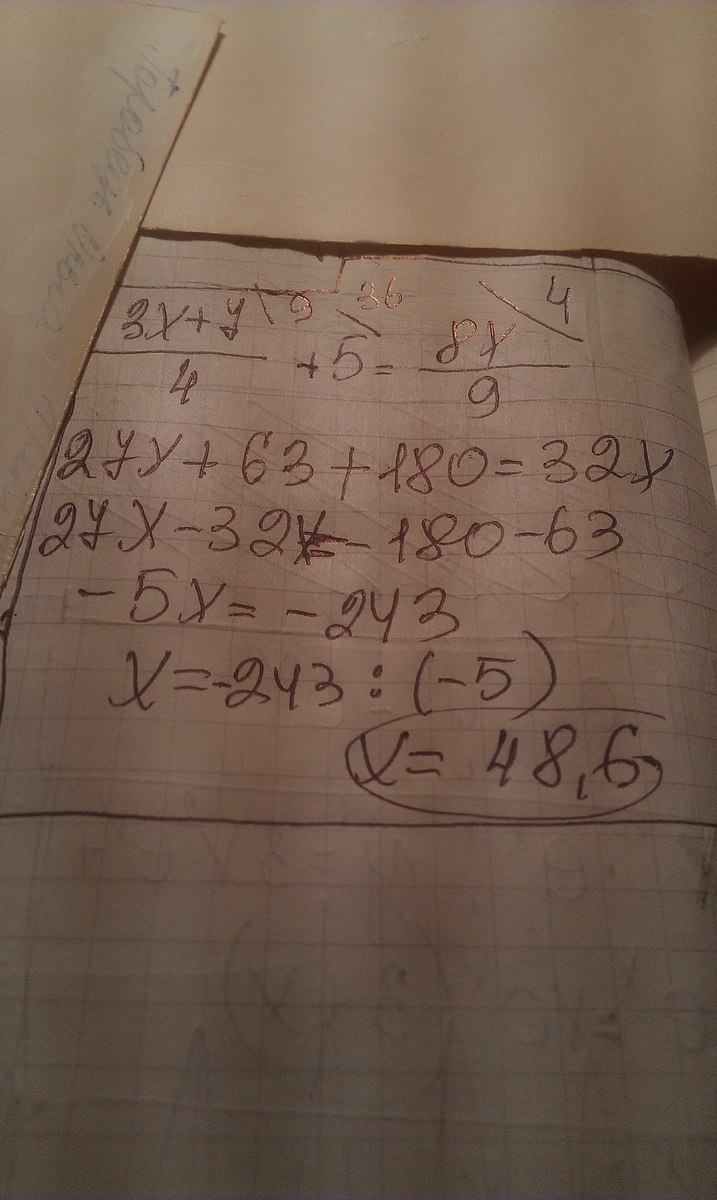 (3x+7)/4 \9 + 5 \36 = 8x/9 \4
27x+63+180=32x
27x-32x=-180-63
-5x=-243
x=-243:(-5)
x=48,6